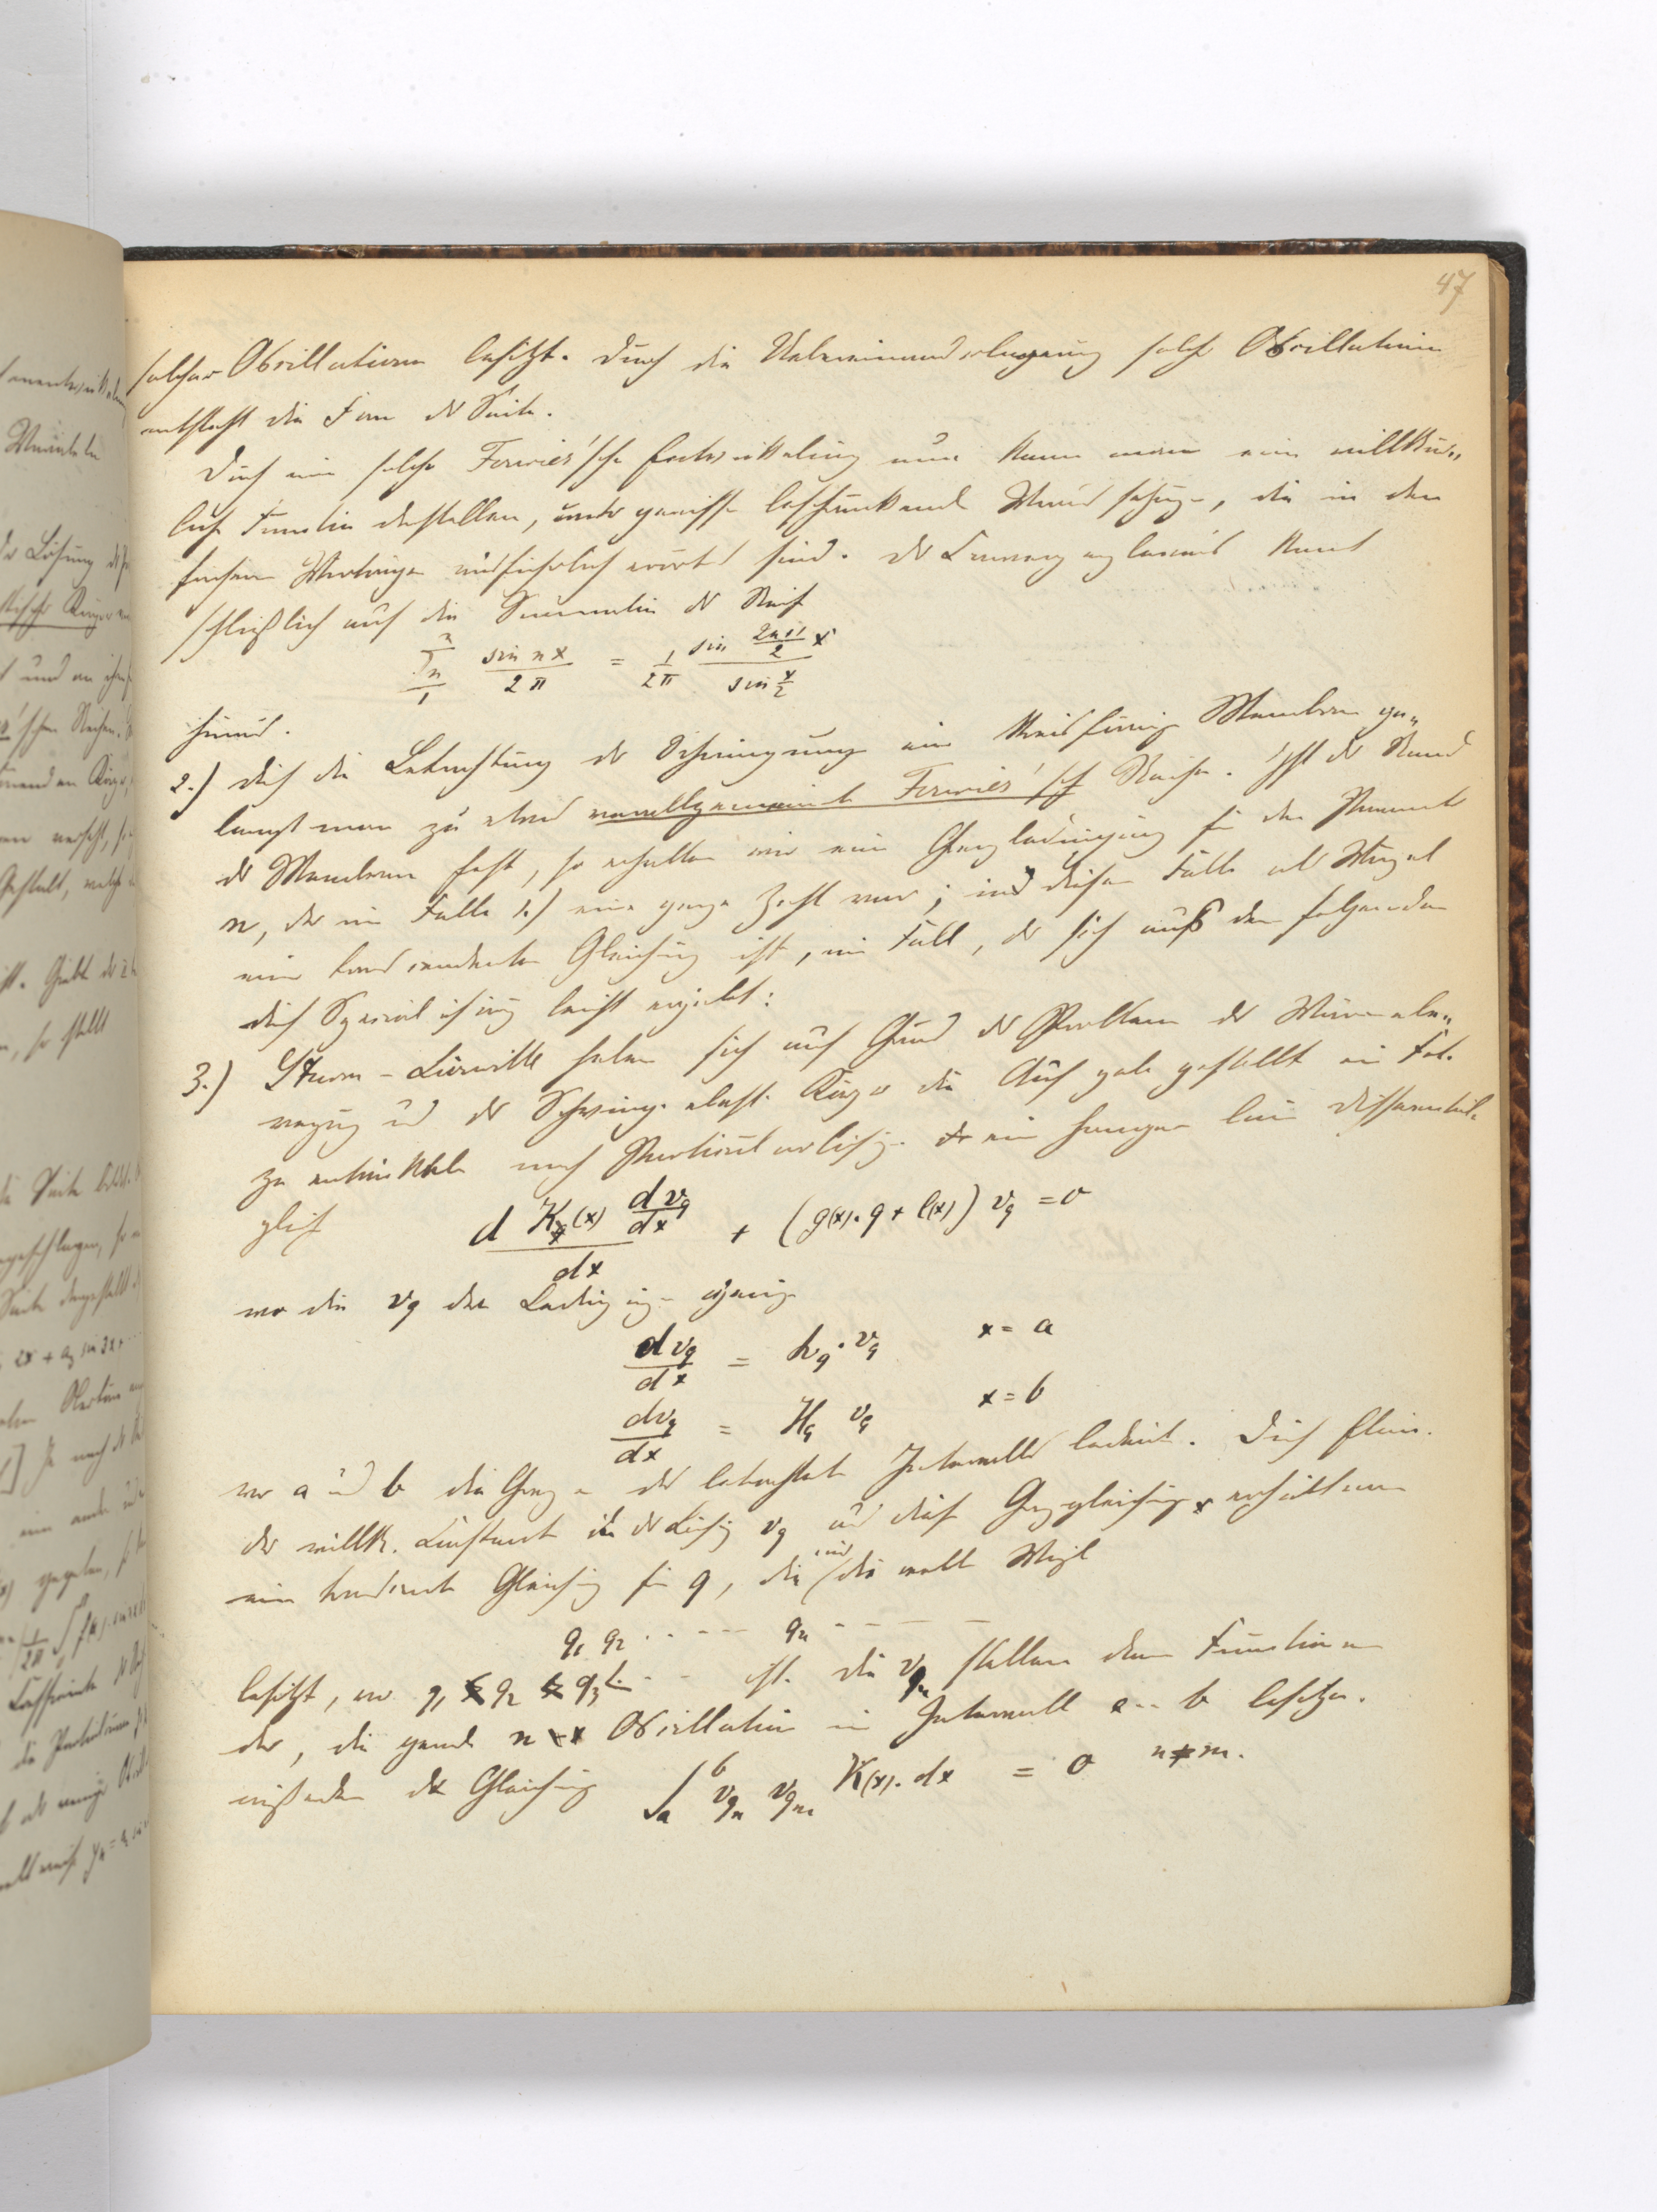 47
solcher Oscillationen besitzt. Durch die Uebereinanderlagerung solcher Oscillationen
entsteht die Form der Saite.
Durch eine solche Fourier'sche Entwickelung nun kann man eine willkür„
liche Function darstellen, unter gewissen beschränkenden Voraussetzungen, die in den
früheren Vorträgen ausführlich erörtert sind. Der Convergenzbeweis kommt
schließlich auf die Summation der Reihe
\sum_1^n \frac{\sin nx}{2\pi} = \frac{1}{2\pi} \frac{\sin \frac{2n+1}{2} x}{\sin \frac{x}{2}}
hinaus.
2.) Durch die Betrachtung der Schwingungen einer kreisförmigen Membran ge„
langt man zu etwas verallgemeinerten Fourier'schen Reihen. Ist der Rand
der Membran fest, so erhalten wir eine Grenzbedingung für den Parameter
n, der im Falle 1.) eine ganze Zahl war; und in diesem Falle als Wurzel
einer transcendenten Gleichung ist, ein Fall, der sich aus dem folgenden
durch Specialisirung leicht ergiebt:
3.) Sturm - Liouville haben sich auf Grund der Probleme der Wärmebe„
wegung und der Schwing. elast. Körper die Aufgabe gestellt eine Fct.
zu entwickeln nach Particularlösgn. einer homogenen lin. Differential-
glch. \frac{d K(x) \frac{dv_q}{dx}}{dx} + (g(x).q + l(x)) v_q = 0
wo die v_q den Bedingungen genügen
\frac{dv_q}{dx} = h_q . v_q x = a
\frac{dv_q}{dx} = H_q v_q x = b
wo a und b die Grenzen des betrachteten Intervalls bedeuten. Durch Elim.
der willk. Constante in der Lösung v_q aus diesen Grenzgleichungen erhält man
eine transcendente Gleichung für q, die und. die reelle Wurzeln
q_1 q_2 . . . - - - q_n - - - -
besitzt, wo q_1 < q_2 < q_3 < . . - ist. Die v_{q_n} stellen dann Functionen
dar, die gerade n Oscillationen im Intervall a - - b besitzen.
außerdem der Gleichung \int_a^b v_{q_n} v_{q_m} K(x). dx = 0 n ≠ m.